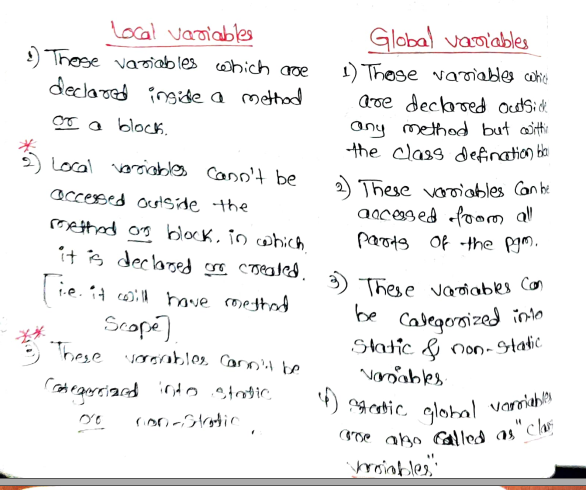 Local variables
1) These variables which are
declared inside a method
or a block.
*
2) Local variables cann't be
accessed outside the
method or block. in which
it is declared or created.
[i.e. it will have method
Scope]
**
3) These variables cann't be
Categorized into static
or non-static.
Global variables
1) These variables which
are declared outside
any method but within
the class defination
2) These variables can be
accessed from all
parts of the pgm.
3) These variables can
be categorized into
static & non-static
variables.
4) static global variables
are also called as "class
variables".